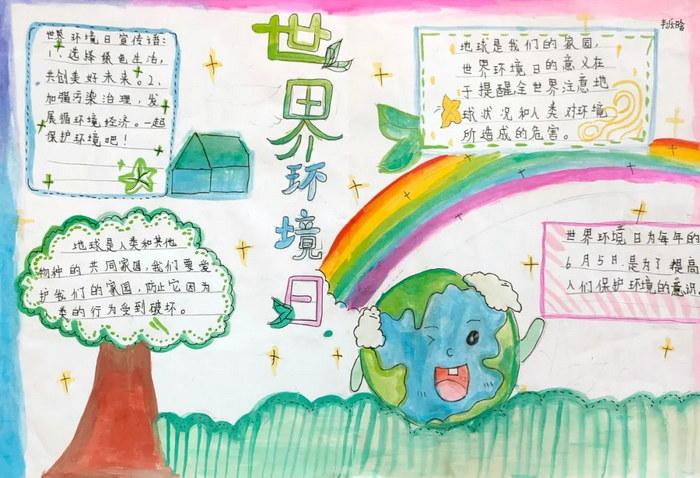 世界环境日
世界环境日宣传语：
1、选择绿色生活，
共创美好未来。2、
加强污染治理，发
展循环境经济。一起
保护环境吧！
地球是我们的家园，
世界环境日的意义在
于提醒全世界注意地
球状况和人类对环境
所造成的危害。
地球是人类和其他
物种的共同家园，我们要爱
护我们的家园，防止它因为
人类的行为受到破坏。
世界环境日为每年的
6月5日是为了提高
人们保护环境的意识。